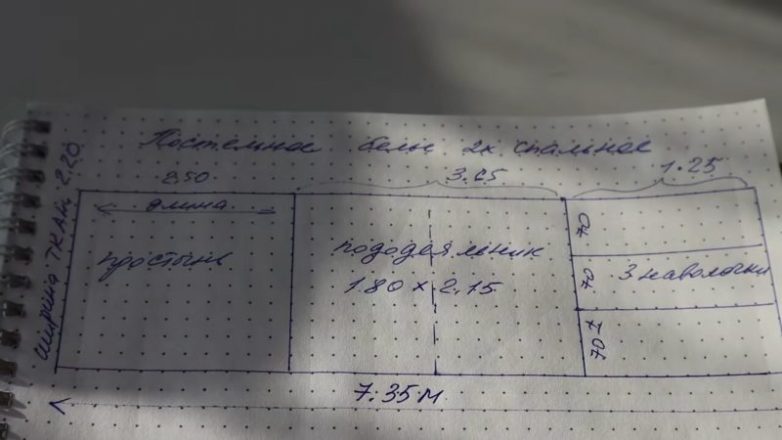 Постельное белье 2х спальное
Ширина ткани 2.20
2.50
3.65
1.25
длина
простынь
пододеяльник
180 х 2.15
70
70
70
3 наволочки
7.35 м